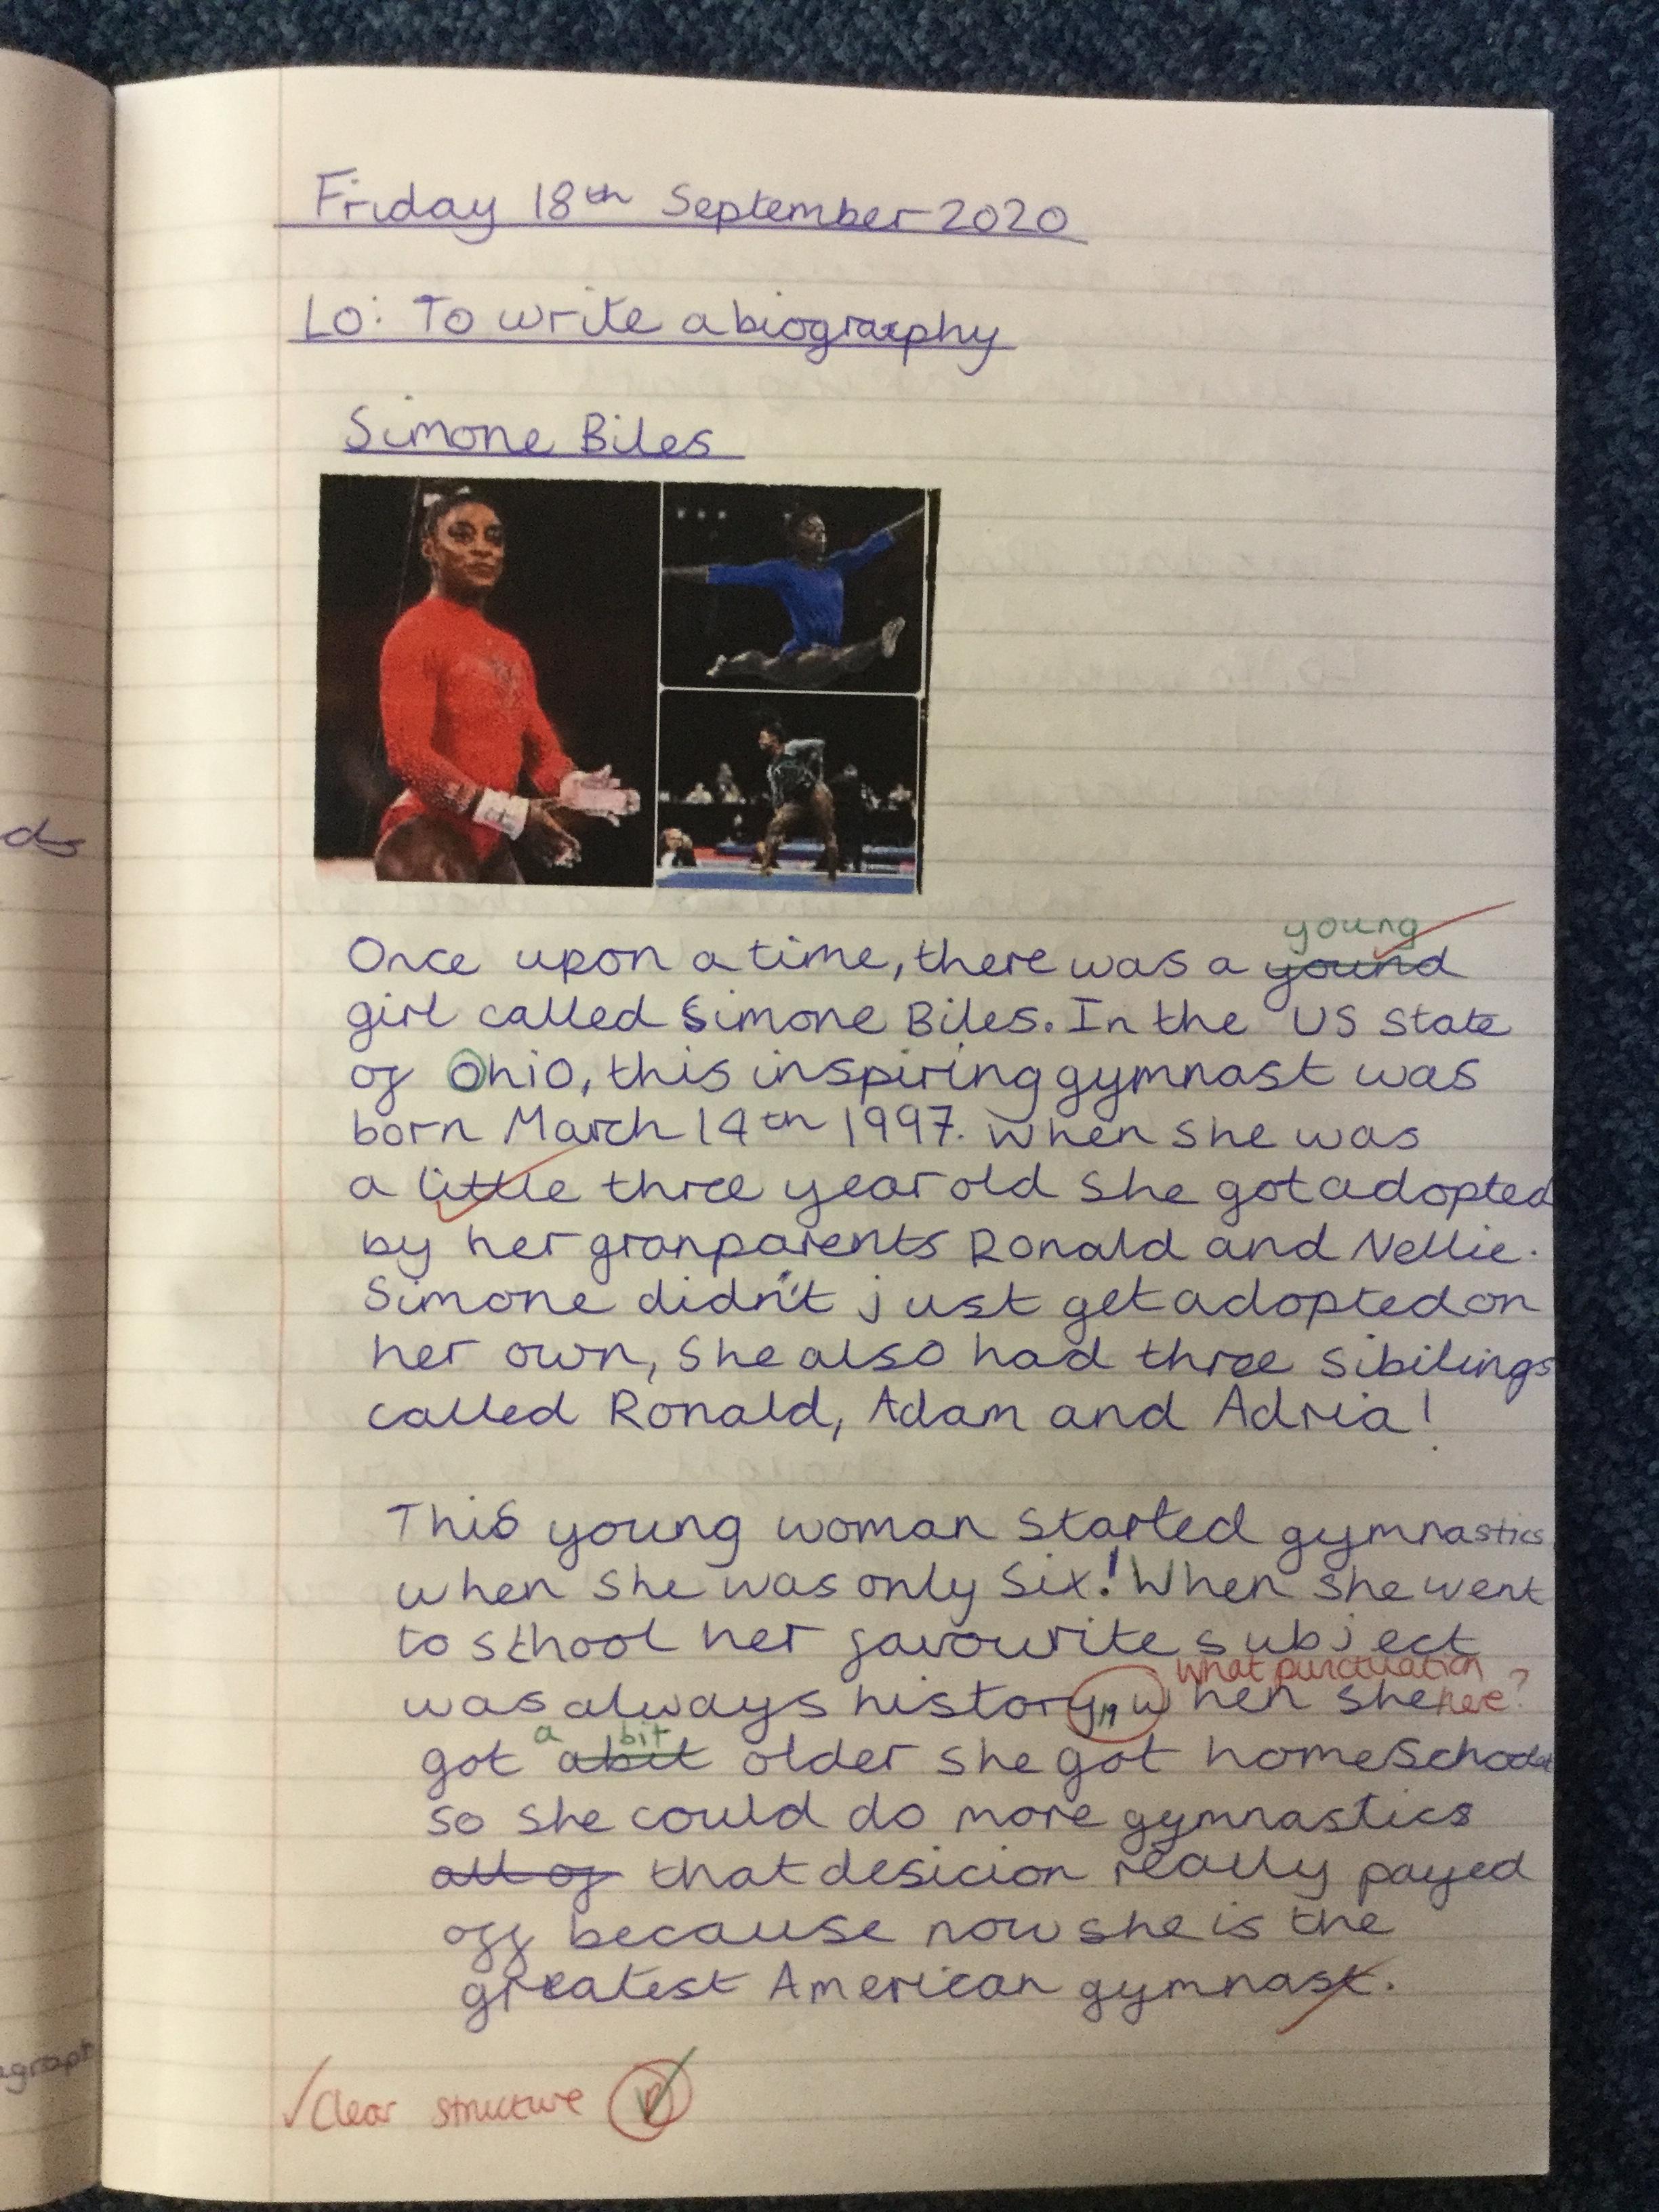 Friday 18th September 2020
Lo: To write a biography
Simone Biles
young
Once upon a time, there was a yound
girl called Simone Biles. In the US state
of Ohio, this inspiring gymnast was
born March 14th 1997. When she was
a little three year old she got adopted
by her granparents Ronald and Nellie.
Simone didn't just get adopted on
her own, she also had three sibilings
called Ronald, Adam and Adria!
This young woman started gymnastics
when she was only six! When she went
to school her favourite subject
What punctuation
was always history, when she here?
a bit
got abit older she got homeschooled
so she could do more gymnastics
all of that desicion really payed
off because now she is the
greatest American gymnast.
✓ Clear structure
ds
agraph